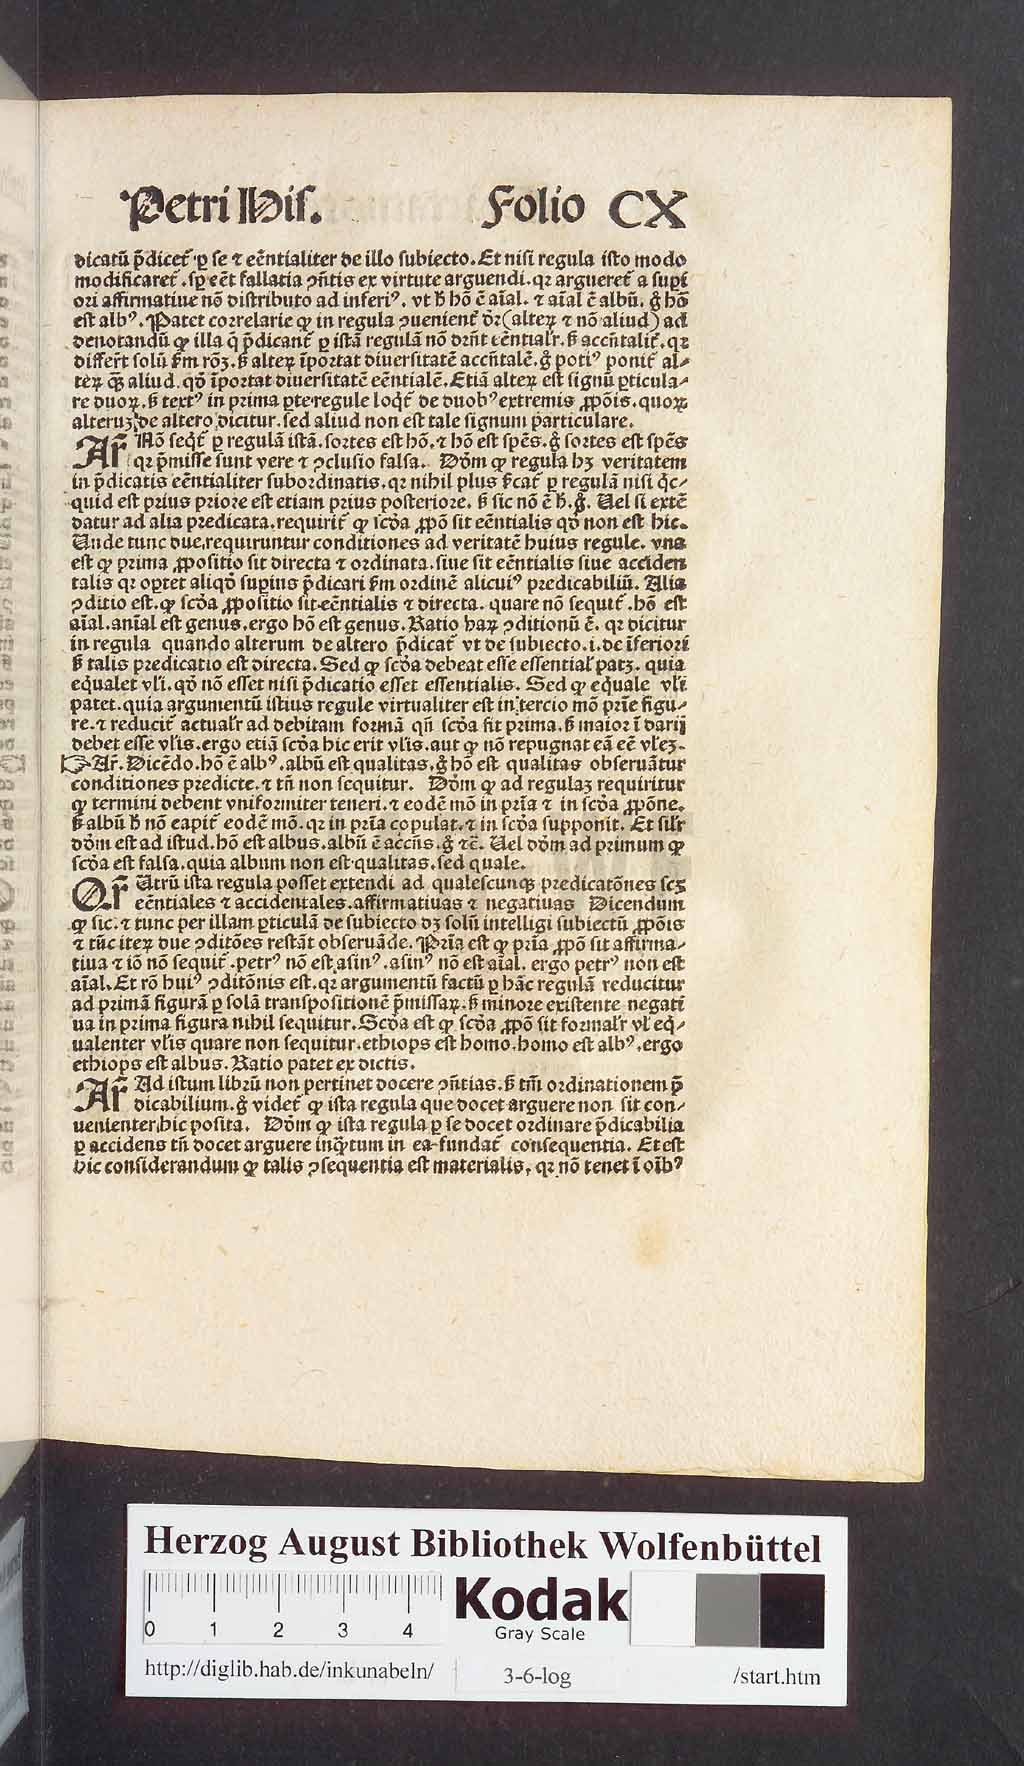 Petri His. Folio CX
dicatū p̄dicet᷑ ꝑ se ⁊ eēntialiter de illo subiecto. Et nisi regula isto modo
modificaret᷑. sꝑ eēt fallatia ꝯn̄tis ex virtute arguendi. qꝛ argueret᷑ a supi
ori affirmatiue nō distributo ad inferiꝰ. vt hō ē aīal. ⁊ aīal ē albū. g̊ hō
est albꝰ. Patet correlarie ꝙ in regula ꝯuenient᷑ dr̄ (alteꝝ ⁊ nō aliud) ad
denotandū ꝙ illa q̄ p̄dicant᷑ ꝑ istā regulā nō dn̄t eēntialr̄. sꝫ accn̄talit᷑. qꝛ
differt solū ẜm rōꝫ. sꝫ alteꝝ īportat diuersitatē accn̄talē. g̊ potiꝰ ponit᷑ al-
teꝝ q̄ꝫ aliud. qḋ īportat diuersitatē eēntialē. Etiā alteꝝ est signū ꝑticula-
re duoꝝ. sꝫ textꝰ in prima ꝑte regule loqt᷑ de duobꝰ extremis ꝓpōis. quoꝝ
alteruꝫ de altero dicitur. sed aliud non est tale signum particulare.
Ar̄ Nō seqt᷑ ꝑ regulā istā. sortes est hō. ⁊ hō est spēs. g̊ sortes est spēs
qꝛ p̄misse sunt vere ⁊ ꝯclusio falsa. Dōm ꝙ regula hꝫ veritatem
in p̄dicatis eēntialiter subordinatis. qꝛ nihil plus ẜcat᷑ ꝑ regulā nisi qc-
quid est prius priore est etiam prius posteriore. sꝫ sic nō ē h. g̊. Uel si extē
datur ad alia predicata. requirit᷑ ꝙ scḋa ꝓpō sit eēntialis qḋ non est hic.
Unde tunc due requiruntur conditiones ad veritatē huius regule. vna
est ꝙ prima ꝓpositio sit directa ⁊ ordinata. siue sit eēntialis siue acciden
talis qꝛ optet aliqḋ supius p̄dicari ẜm ordinē alicuiꝰ predicabiliū. Alia
ꝯditio est. ꝙ scḋa ꝓpositio sit eēntialis ⁊ directa. quare nō sequit᷑. hō est
aīal. anīal est genus. ergo hō est genus. Ratio haꝝ ꝯditionū ē. qꝛ dicitur
in regula quando alterum de altero p̄dicat᷑ vt de subiecto. i. de īferiori
sꝫ talis predicatio est directa. Sed ꝙ scḋa debeat esse essential̓ patꝫ. quia
eq̄ualet vl̓i. qḋ nō esset nisi p̄dicatio esset essentialis. Sed ꝙ eq̄uale vl̓i
patet. quia argumentū istius regule virtualiter est in tercio mō prīe figu-
re. ⁊ reducit᷑ actualr̄ ad debitam formā qn̄ scḋa fit prima. sꝫ maior ī darij
debet esse vl̓is. ergo etiā scḋa hic erit vl̓is. aut ꝙ nō repugnat eā eē vl̓eꝫ.
☞ Ar̄. Dicēdo. hō ē albꝰ. albū est qualitas. g̊ hō est qualitas obseruātur
conditiones predicte. ⁊ tn̄ non sequitur. Dōm ꝙ ad regulaꝫ requiritur
ꝙ termini debent vniformiter teneri. ⁊ eodē mō in prīa ⁊ in scḋa ꝓpōne.
sꝫ albū h nō capit᷑ eodē mō. qꝛ in prīa copulat. ⁊ in scḋa supponit. Et silr̄
dōm est ad istud. hō est albus. albū ē accn̄s. g̊ ⁊c̄. Uel dōm ad primum ꝙ
scḋa est falsa. quia album non est qualitas. sed quale.
Qr̄ Utrū ista regula posset extendi ad qualescunqꝫ predicatōnes scꝫ
eēntiales ⁊ accidentales. affirmatiuas ⁊ negatiuas Dicendum
ꝙ sic. ⁊ tunc per illam ꝑticulā de subiecto dꝫ solū intelligi subiectū ꝓpōis
⁊ tūc iteꝝ due ꝯditōes restāt obseruāde. Prīa est ꝙ prīa ꝓpō sit affirma-
tiua ⁊ iō nō sequit᷑. petrꝰ nō est asinꝰ. asinꝰ nō est aīal. ergo petrꝰ non est
aīal. Et rō huiꝰ ꝯditōnis est. qꝛ argumentū factū ꝑ hāc regulā reducitur
ad primā figurā ꝑ solā transpositionē p̄missaꝝ. sꝫ minore existente negati
ua in prima figura nihil sequitur. Scḋa est ꝙ scḋa ꝓpō sit formalr̄ vl̓ eq̄-
ualenter vl̓is quare non sequitur. ethiops est homo. homo est albꝰ. ergo
ethiops est albus. Ratio patet ex dictis.
Ar̄ Ad istum librū non pertinet docere ꝯn̄tias. sꝫ tm̄ ordinationem p̄
dicabilium. g̊ videt᷑ ꝙ ista regula que docet arguere non sit con-
uenienter hic posita. Dōm ꝙ ista regula ꝑ se docet ordinare p̄dicabilia
ꝑ accidens tn̄ docet arguere inq̄ntum in ea fundat᷑ consequentia. Et est
hic considerandum ꝙ talis ꝯsequentia est materialis, qꝛ nō tenet ī oībꝰ
Herzog August Bibliothek Wolfenbüttel
0 1 2 3 4
Kodak
Gray Scale
http://diglib.hab.de/inkunabeln/ 3-6-log /start.htm